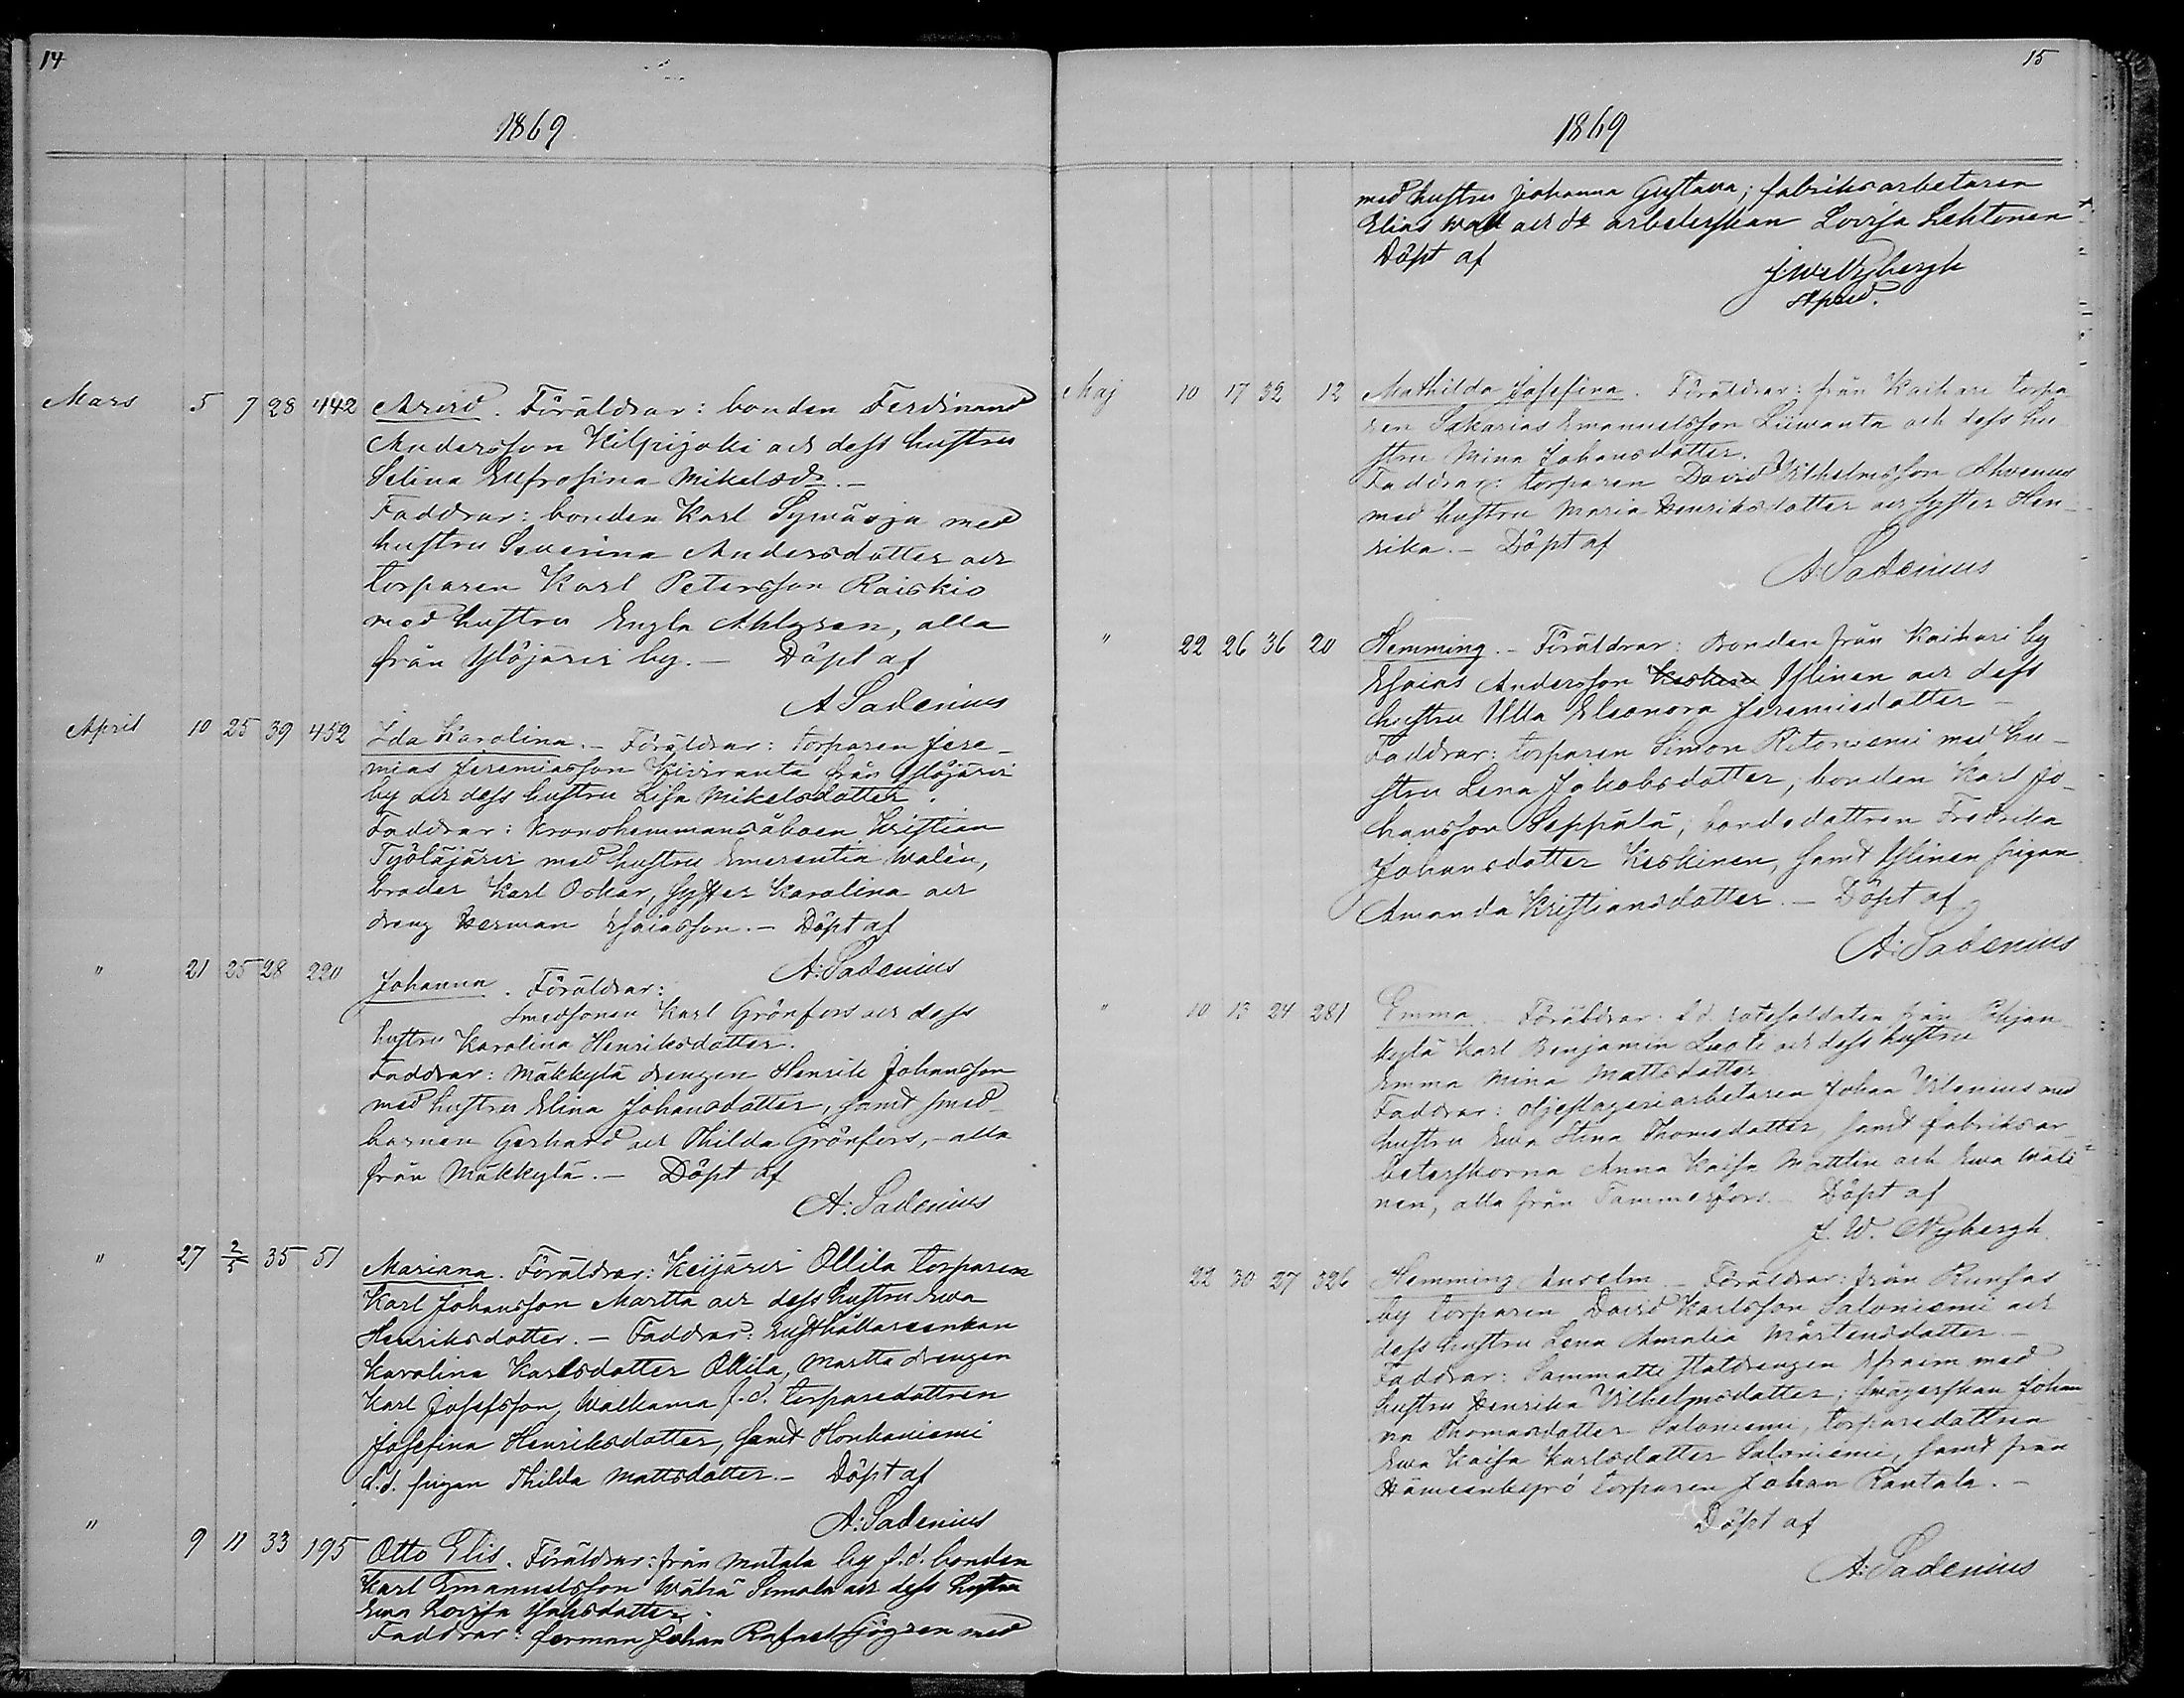 14
1869
Mars 5 7 28 442 Arvid. Föräldrar: bonden Ferdinand
Andersson Kilpijoki och dess hustru
Selina Eufrosina Mikelsdr. –
Faddrar: bonden Karl Sywäoja med
hustru Severina Andersdotter och
torparen Karl Petersson Raiskio
med hustru Engla Ahlgren, alla
från Ylöjärvi by. – Döpt af
A Sadenius
April 10 25 39 452 Ida Karolina. – Föräldrar: torparen Jere-
mias Jeremiasson Kiviranta från Ylöjärvi
by och dess hustru Lisa Mikelsdotter.
Faddrar: Kronohemmansåboen Kristian
Työläjärvi med hustru Emerentia Walén,
broder Karl Oskar, syster Karolina och
dreng Herman Esaiasson. – Döpt af
A: Sadenius
" 21 25 28 220 Johanna. Föräldrar:
Smedsonen Karl Grönfors och dess
hustru Karolina Henriksdotter.
Faddrar: Mäkkylä drengen Henrik Johansson
med hustru Elina Johansdotter, samt smed-
barnen Gerhard och Thilda Grönfors, – alla
från Mäkkylä. – Döpt af
A: Sadenius
" 27 2/5 35 51 Mariana. Föräldrar: Keijärvi Ollila torparen
Karl Johansson Martta och dess hustru Ewa
Henriksdotter. – Faddrar: Rusthållareenkan
Karolina Karlsdotter Ollila, Martta drengen
Karl Josefsson, Walkama f.d. torparedottren
Josefina Henriksdotter, samt Honkaniemi
f.d. pigan Thilda Mattsdotter. – Döpt af
A: Sadenius
" 9 11 33 195 Otto Elis. Föräldrar: från Mutala by f.d. bonden
Karl Emanuelsson Wähä Simola och dess hustru
Ewa Lovisa Isaksdotter.
Faddrar: forman Johan Rafael Sjögren med
15
1869
med hustru Johanna Gustava; fabriksarbetaren
Elias Wall och do arbeterskan Lovisa Lehtonen
Döpt af
J. W. Nybergh
Maj 10 17 32 12 Mathilda Josefina. Föräldrar: från Kaihari torpa
ren Sakarias Emanuelsson Liiwanta och dess hu
stru Mina Johansdotter.
Faddrar: torparen David Vilhelmsson Ahvenus
med hustru Maria Henriksdotter och syster Hen-
rika. – Döpt af
A: Sadenius
" 22 26 36 20 Hemming. – Föräldrar: Bonden från Kaihari by
Esaias Andersson Keskinen Ylinen och dess
hustru Ulla Eleonora Jeremiedotter –
Faddrar: torparen Simon Ritoniemi med hu-
stru Lena Jakobsdotter, bonden Karl Jo-
hansson Seppälä, bondedottren Fredrika
Johansdotter Keskinen, samt Ylinen pigan
Amanda Kristiansdotter. – Döpt af
A: Sadenius
" 10 13 24 281 Emma. – Föräldrar: f.d. rotesoldaten från Pohjan-
kylä Karl Benjamin Luoti och dess hustru
Emma Mina Mattsdotter
Faddrar: oljeslageriarbetaren Johan Vilenius med
hustru Ewa Stina Thomsdotter, samt fabriksar-
beterskorna Anna Kaisa Mattlin och Ewa Wäli-
nen, alla från Tammerfors. – Döpt af
J. W. Nybergh.
22 30 27 326 Hemming Anselm. – Föräldrar: från Runsas
by torparen David Karlsson Saloniemi och
dess hustru Lena Amalia Mårtensdotter –
Faddrar: Sammatti statdrengen Efraim med
hustru Henrika Vilhelmsdotter; swägerskan Johan
na Thomasdotter Saloniemi, torparedottren
Ewa Kaisa Karlsdotter Saloniemi, samt från
Hämeenkyrö torparen Johan Rantala. –
Döpt af
A: Sadenius